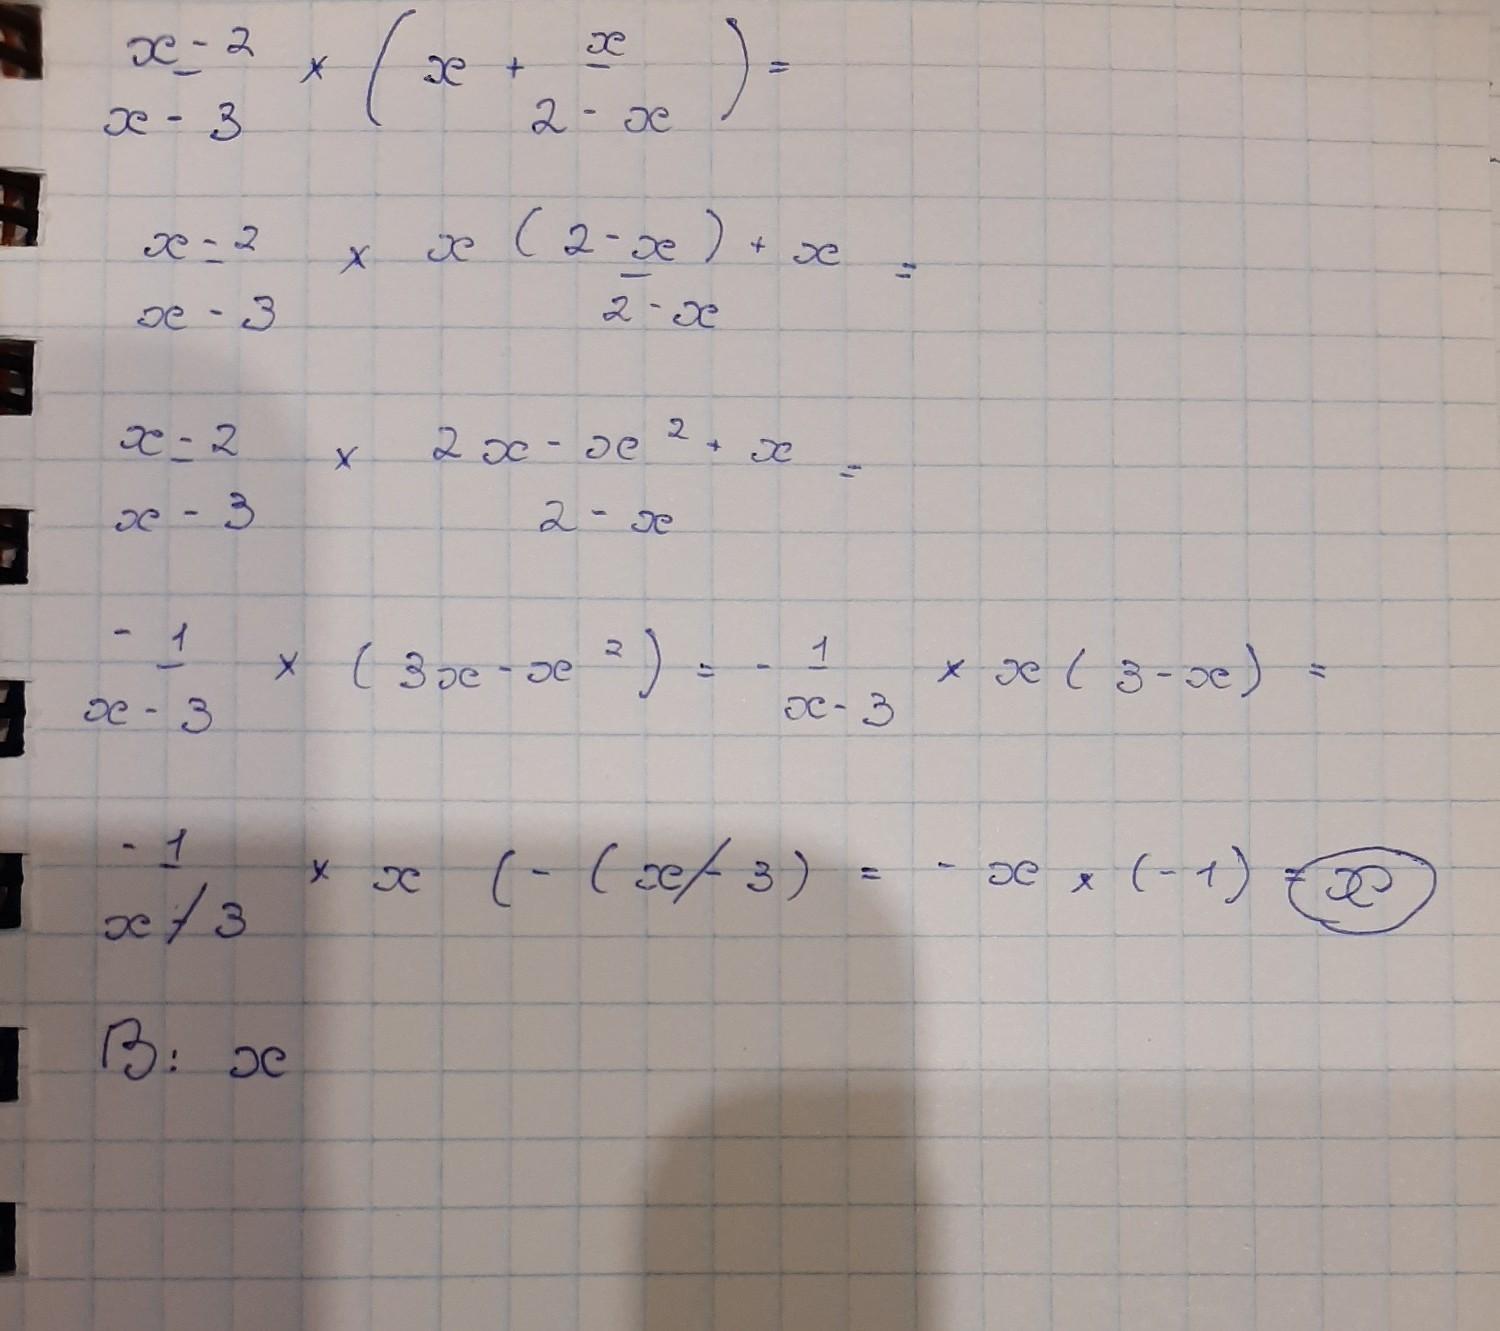 x - 2 / x - 3 × ( x + x / 2 - x ) =
x - 2 / x - 3 × x ( 2 - x ) + x / 2 - x =
x - 2 / x - 3 × 2x - x² + x / 2 - x =
- 1 / x - 3 × ( 3x - x² ) = - 1 / x - 3 × x ( 3 - x ) =
- 1 / x - 3 × x ( - ( x - 3 ) = - x × ( - 1 ) = x
В: x